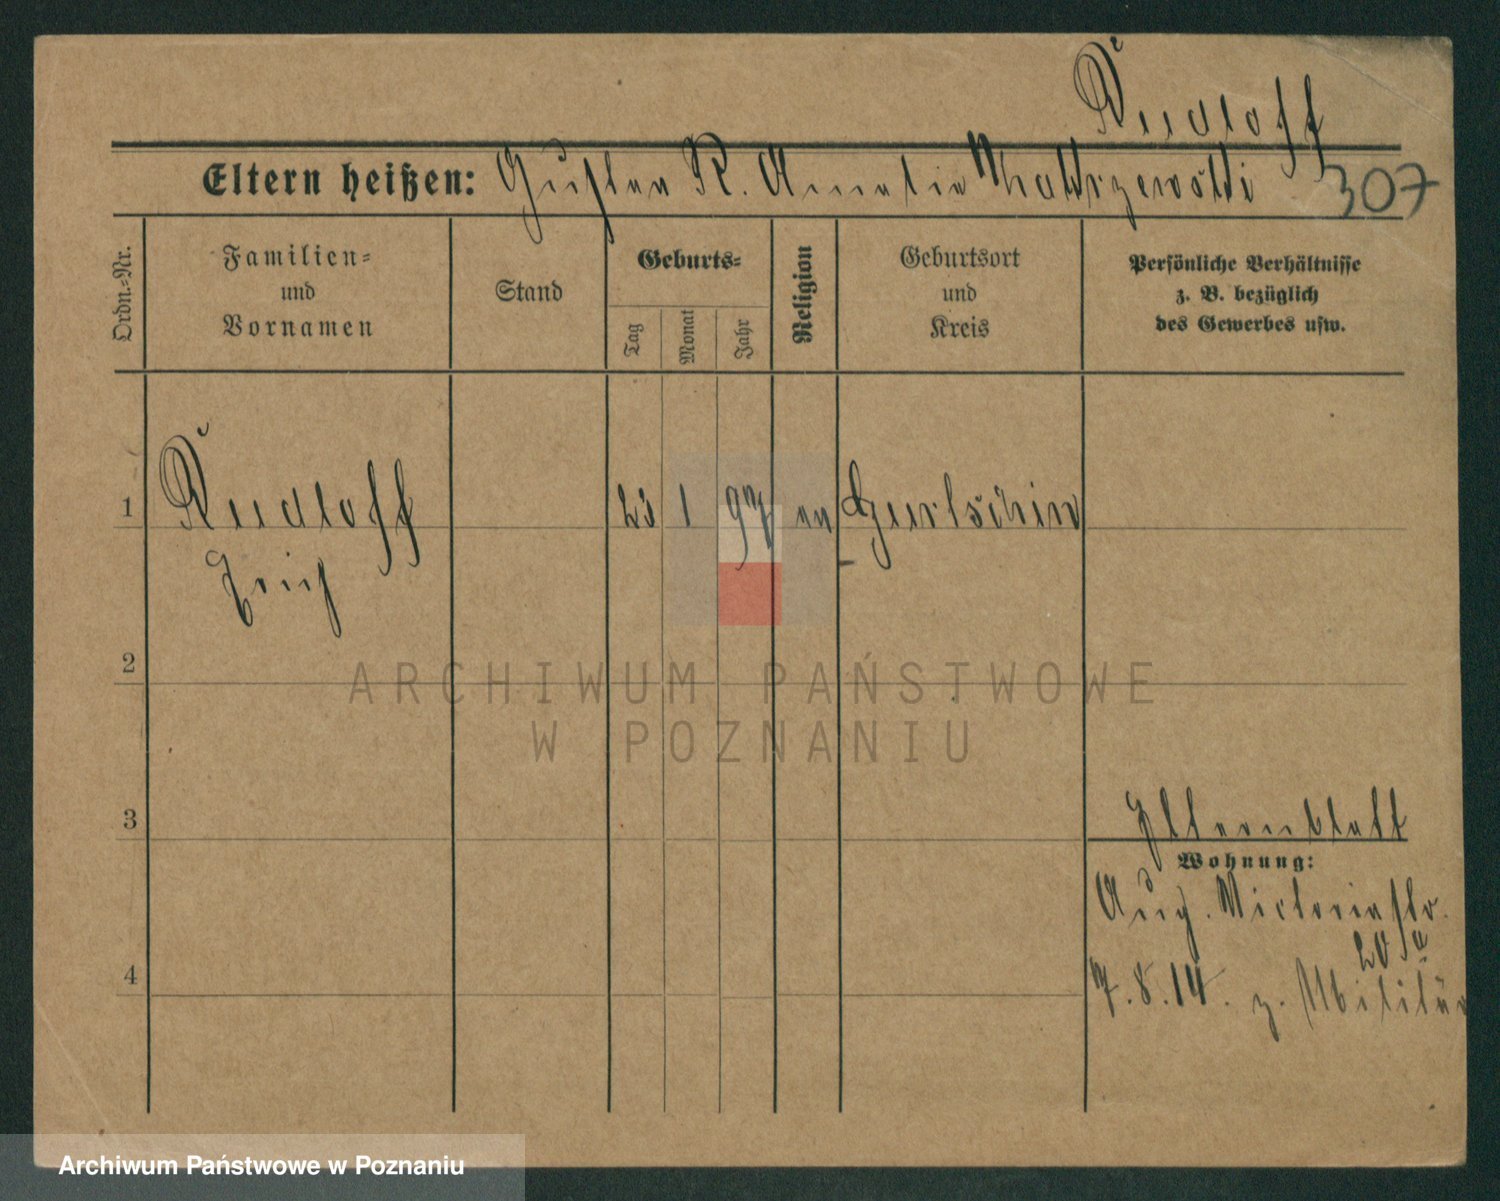 Rudloff
Eltern heißen: Gustav R. Amalie
307
Ordn.-Nr.
Familien-
und
Vornamen
Stand
Geburts-
Tag
Monat
Jahr
Religion
Geburtsort
und
Kreis
Persönliche Verhältnisse
z. B. bezüglich
des Gewerbes usw.
1 Rudloff 1 97 ev Gurtschin
Erich
2
ARCHIWUM PAŃSTWOWE
W POZNANIU
3 Elternblatt
Wohnung:
Aug. Victoriastr.
20a
4 7.8.14. z. Militär
Archiwum Państwowe w Poznaniu